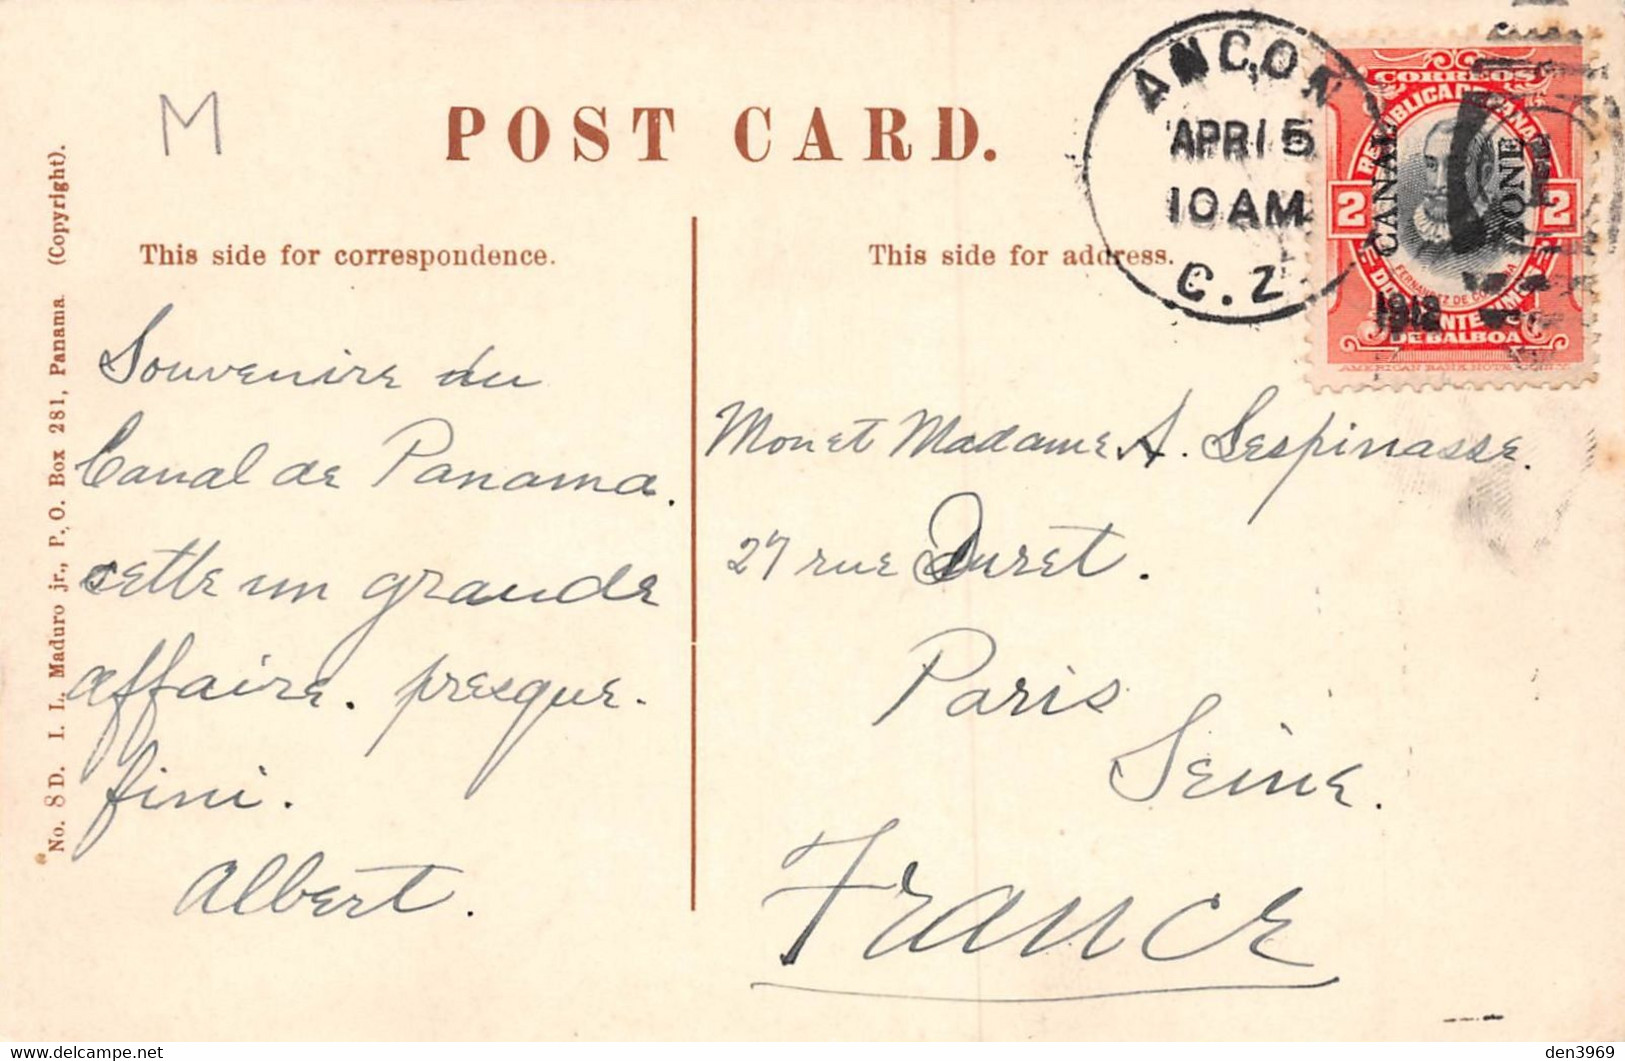 M
POST CARD.
ANCON
APR 15
10 AM
C. Z.
1912
CORREOS
REPUBLICA DE PANAMA
CANAL
ZONE
2
2
FERNANDEZ DE CORDOBA
DE BALBOA
AMERICAN BANK NOTE CO. N.Y.
This side for correspondence.
This side for address.
No. 8 D. I. L. Maduro jr., P. O. Box 281, Panama (Copyright).
Souvenire du
Canal de Panama.
cette un grande
affaire. presque.
fini.
Albert.
Mon et Madame A. Lespinasse.
27 rue Duret.
Paris
Seine.
France
den3969